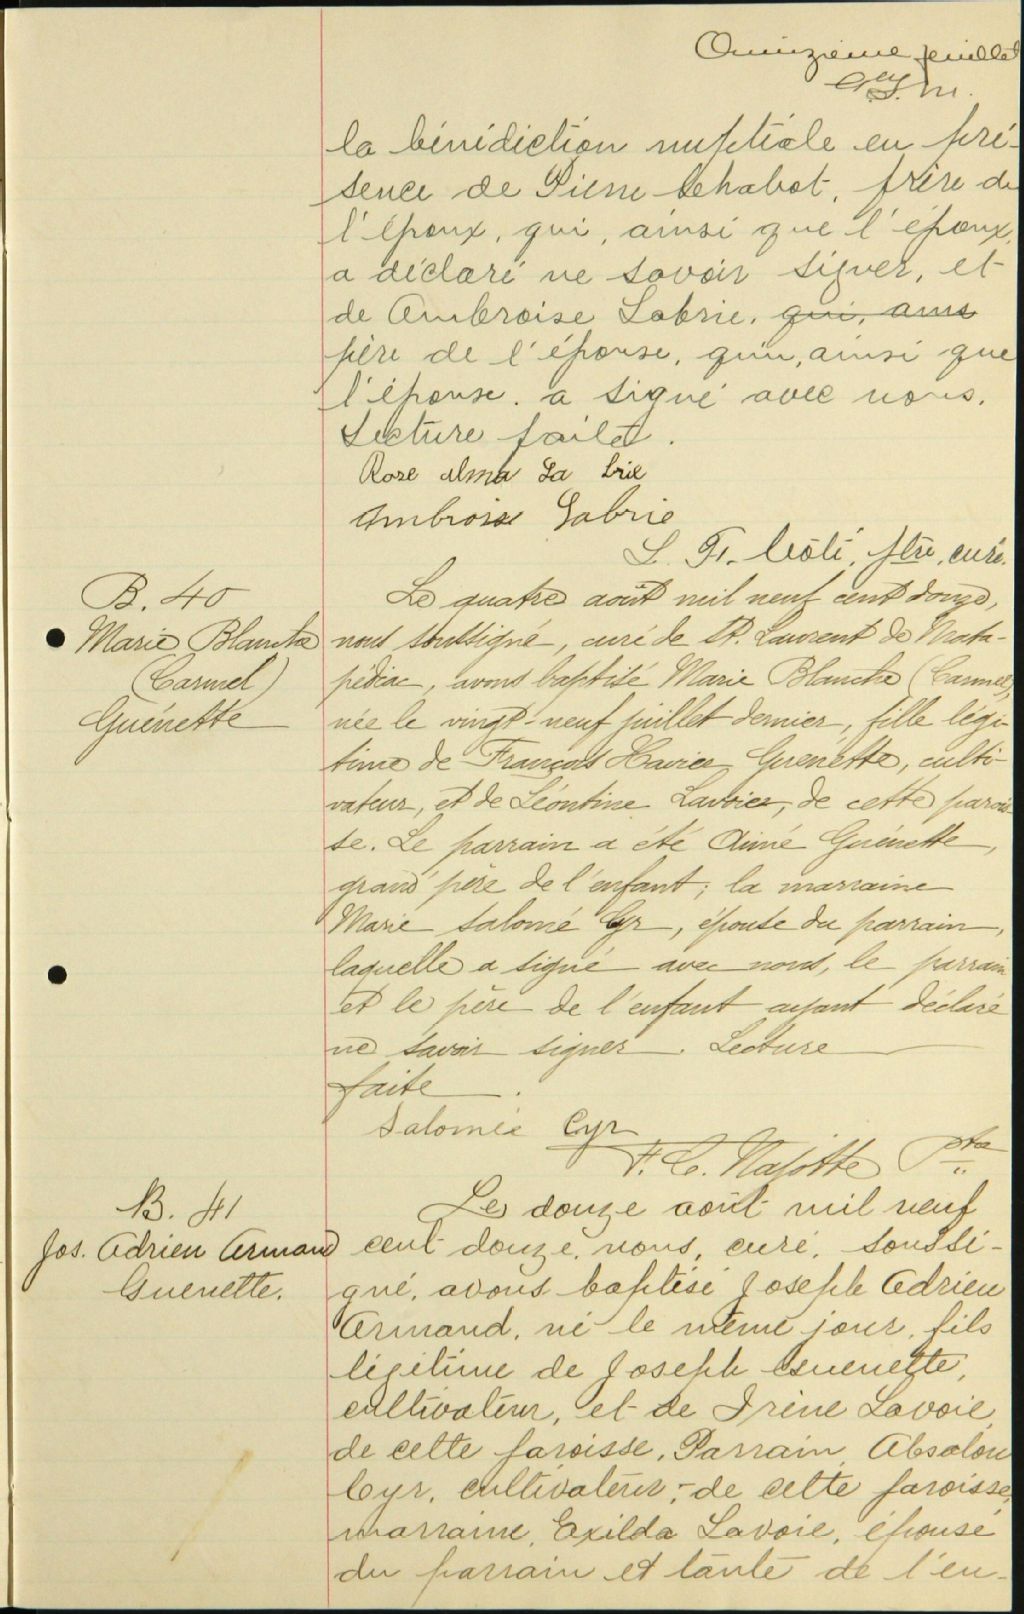 Quinzième feuillet
la bénédiction nuptiale en pré-
sence de Pierre Chabot, frère de
l'époux, qui, ainsi que l'époux,
a déclaré ne savoir signer, et
de Ambroise Labrie, qui, ains
père de l'épouse, qui, ainsi que
l'épouse, a signé avec nous.
Lecture faite.
Rose alma La brie
Ambroise Labrie
L. F. Côté, ptre, curé.
B. 40
Marie Blanche
(Carmel)
Guénette
Le quatre août mil neuf cent douze,
nous soussigné, curé de St. Laurent de Mata-
pédiac, avons baptisé Marie Blanche (Carmel),
née le vingt-neuf juillet dernier, fille légi-
time de François Xavier Guénette, culti-
vateur, et de Léontine Lavoie, de cette parois-
se. Le parrain a été Aimé Guénette,
grand'père de l'enfant; la marraine
Marie Salomé Cyr, épouse du parrain,
laquelle a signé avec nous, le parrain
et le père de l'enfant ayant déclaré
ne savoir signer. Lecture
faite.
Salomée Cyr
F. C. Ptre
B. 41
Jos. Adrien Armand
Guenette.
Le douze août mil neuf
cent douze, nous, curé, soussi-
gné, avons baptisé Joseph Adrien
Armand, né le même jour, fils
légitime de Joseph Guenette,
cultivateur, et de Irène Lavoie,
de cette paroisse. Parrain, Absalon
Cyr, cultivateur, de cette paroisse,
marraine, Exilda Lavoie, épouse
du parrain et tante de l'en-